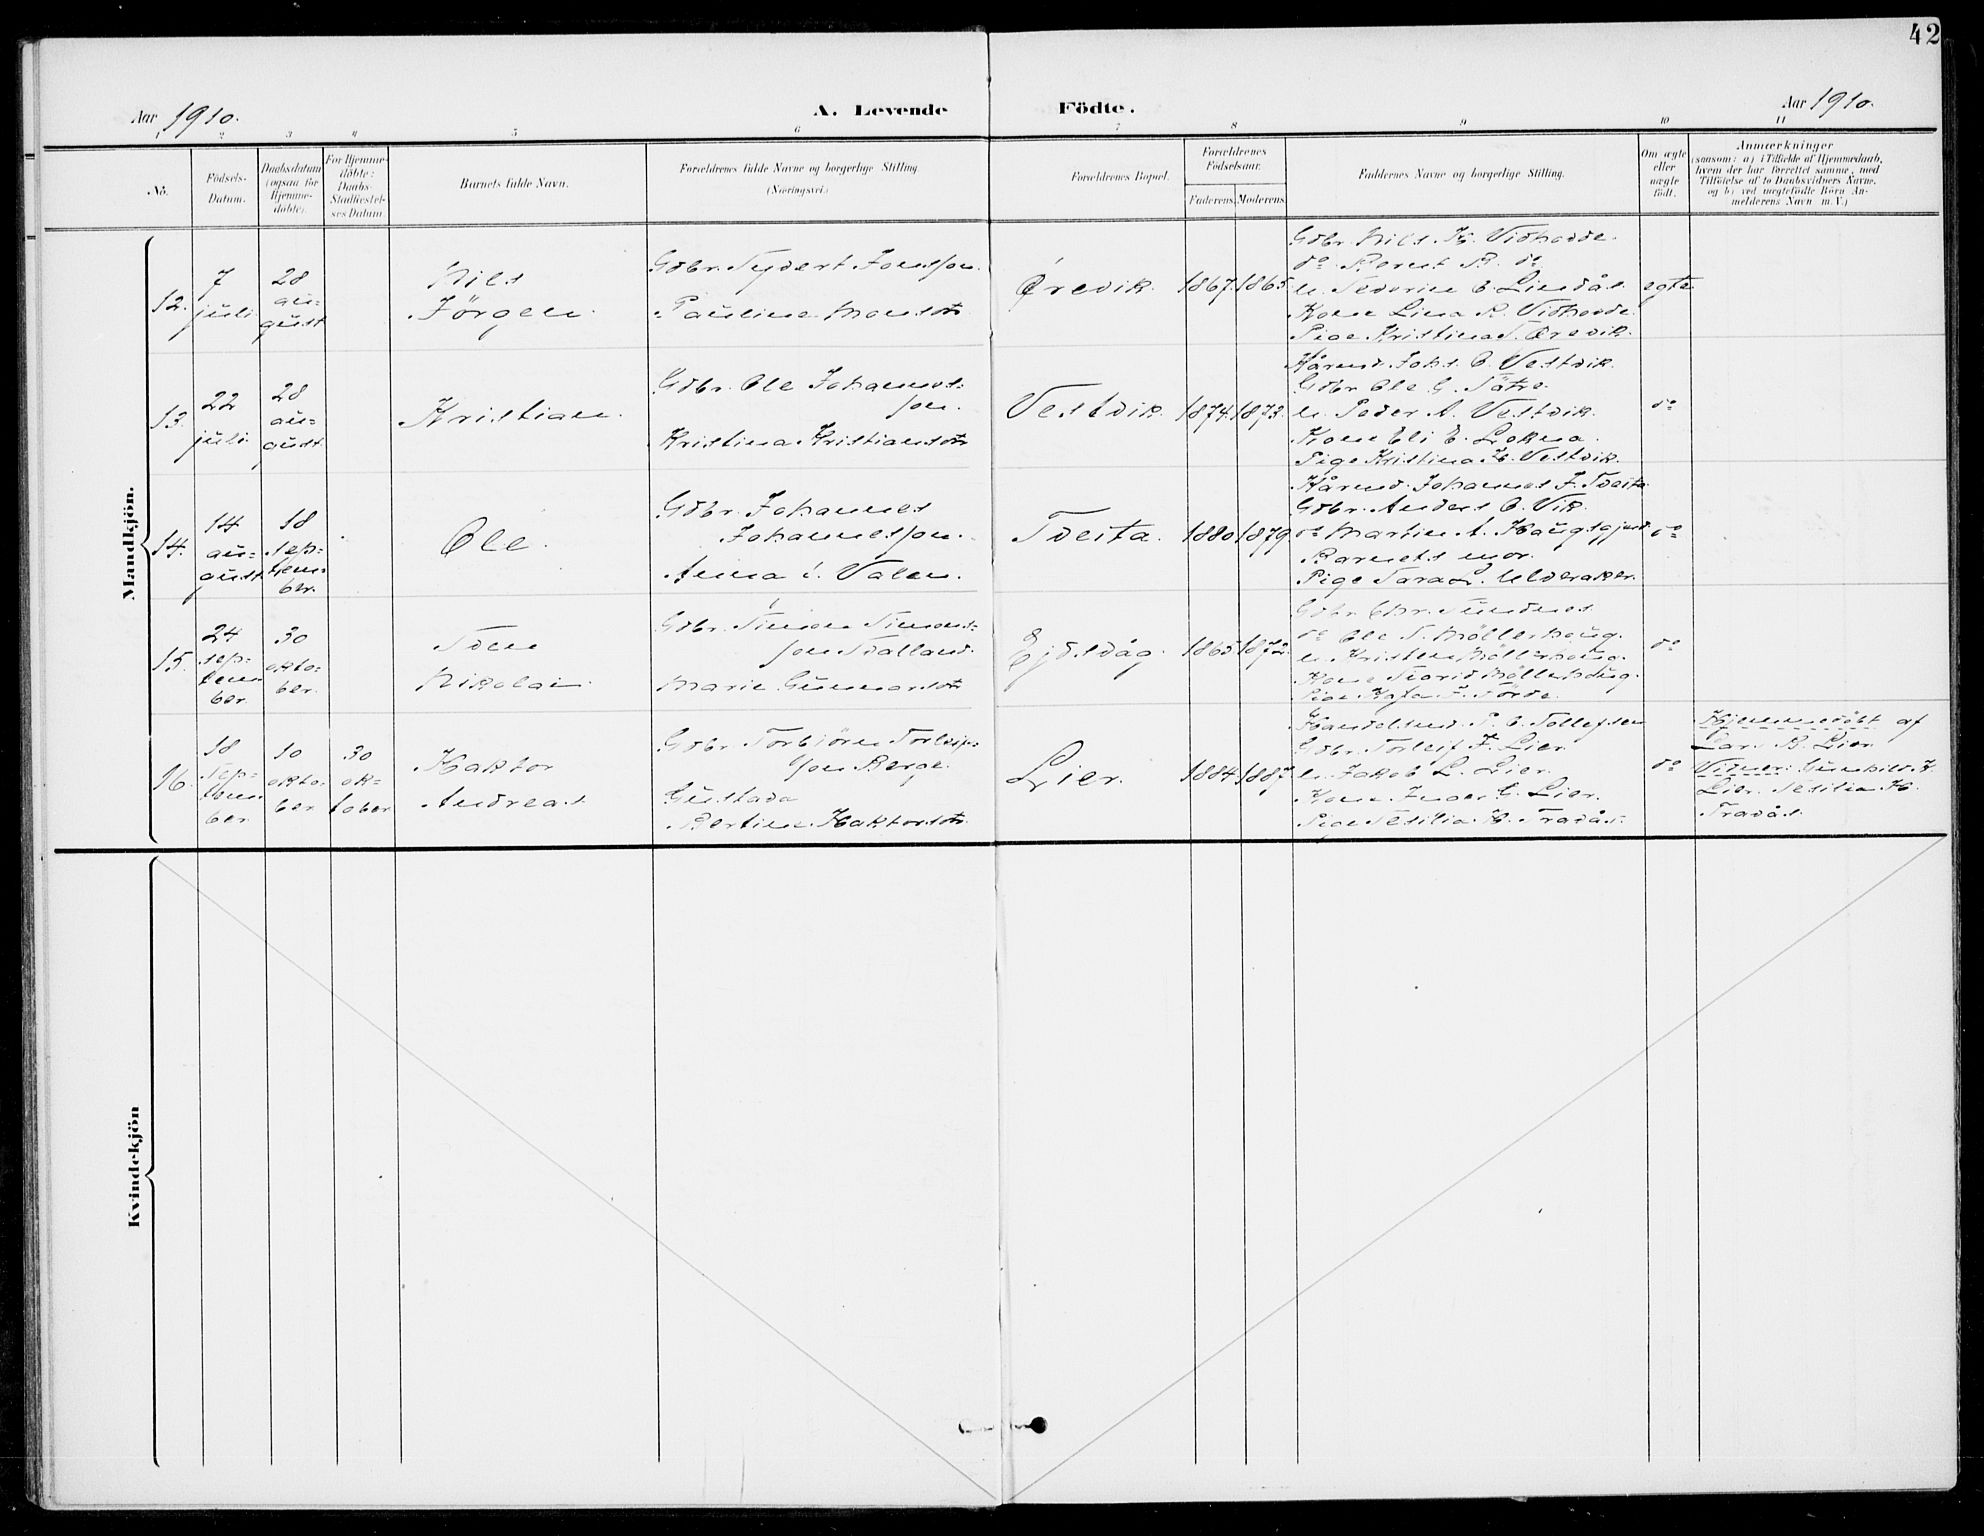 42
Aar 1910.
A. Levende Födte.
Aar 1910.
1 2 3 4 5 6 7 8 9 10 11
No.
Födsels-
Datum.
Daabsdatum
(ogsaa for
Hjemme-
döbte).
For Hjemme-
döbte:
Daabs-
Stadfæstel-
ses Datum
Barnets fulde Navn.
Forældrenes fulde Navne og borgerlige Stilling
(Næringsvei.)
Forældrenes Bopæl.
Forældrenes
Födselsaar.
Faderens.
Moderens.
Faddernes Navne og borgerlige Stilling.
Om ægte
eller
uægte
födt.
Anmærkninger
(saasom: a) i Tilfælde af Hjemmedaab,
hvem der har forrettet samme, med
Tilföielse af to Daabsvidners Navne,
og b) ved uægtefödte Börn An-
melderens Navn m. V.)
Mandkjön.
12.
7
juli
28
au-
gust
Nils
Jörgen.
Gdbr. Sydert Jonsson.
Pauline Monsdtr.
Örevik.
1867.
1865.
Gdbr. Nils K. Vidhovde.
do Bernt B. do
u. Severine E. Lindås.
Kone Lina R. Vidhovde.
Pige Kristina S. Örevik.
egte
13.
22
juli.
28
au-
gust
Kristian.
Gdbr. Ole Johannes-
son.
Kristina Kristiansdtr.
Vestvik.
1874.
1873.
Kårmd. Johs. O. Vestvik.
Gdbr. Ole G. Sätre.
u. Peder A. Vestvik.
Kone Eli E. Lokna.
Pige Kristina K. Vestvik.
do
14.
14
au-
gust
18
sep-
tem-
ber.
Ole.
Gdbr. Johannes
Johannesson.
Anna i. Valen.
Tveita.
1880
1879
Kårmd. Johannes J. Tveita
Gdbr. Anders O. Vik.
do Martin A. Haugsgjerd.
Barnets mor.
Pige Sara L. Ulveraker.
do
15.
24
sep-
tem-
ber
30
okto-
ber.
Sven
Nikolai.
Gdbr. Simon Simons-
son Svalland.
Marie Gunnarsdtr
Ejdsvåg.
1865
1872.
Gdbr. Chr. Sundnes
do Ole S. Möllerhaug.
u. Kristen Möllerhaug.
Kone Siorid Möllerhaug.
Pige Kaja F. Förde.
do
16.
18
sep-
tem-
ber
10
okto-
ber
30
ok-
tober
Haktor
Andreas
Gdbr. Torbjörn Torleifs-
son Berge.
Gustava
Bertine Haktorsdtr.
Lier.
1884
1887
Handelsmd. P. O. Tollefsen
Gdbr. Torleif J. Lier
u. Jakob L. Lier.
Kone Inger G. Lier.
Pige Sesilia H. Tradås.
do
Hjemmedöbt af
Lars B. Lier
Vitner: Gunhild K.
Lier. Sesilia H.
Tradås.
Kvindekjön